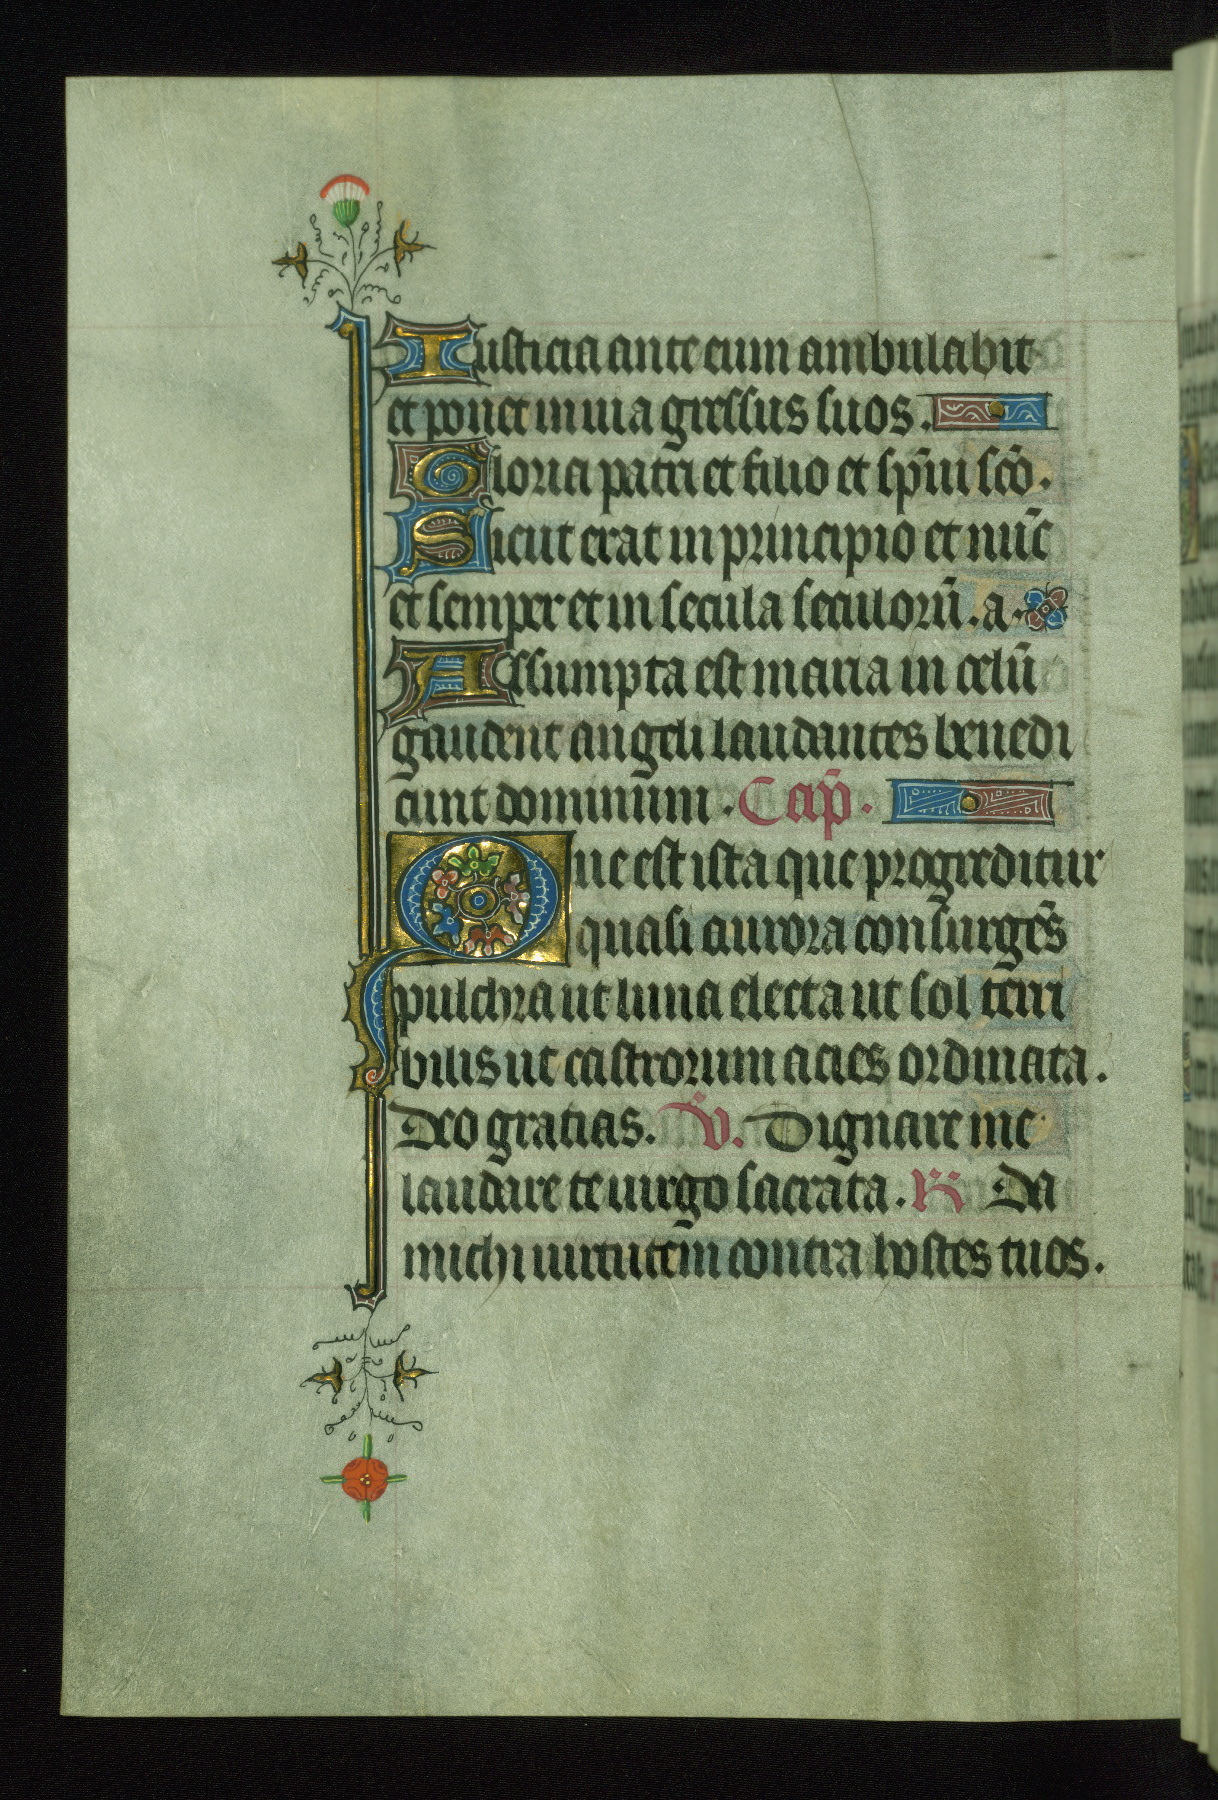 Iusticia ante eum ambulabit
et ponet in uia gressus suos.
Gloria patri et filio et sp̄iui sc̄o.
Sicut erat in principio et nūc
et semper et in secula seculorū. a.
Assumpta est maria in celū
gaudent angeli laudantes benedi
cunt dominum. Cap̄.
Que est ista que progreditur
quasi aurora consurgēs
pulchra ut luna electa ut sol terri
bilis ut castrorum acies ordinata.
Deo gratias. V. Dignare me
laudare te uirgo sacrata. R Da
michi uirtutem contra hostes tuos.